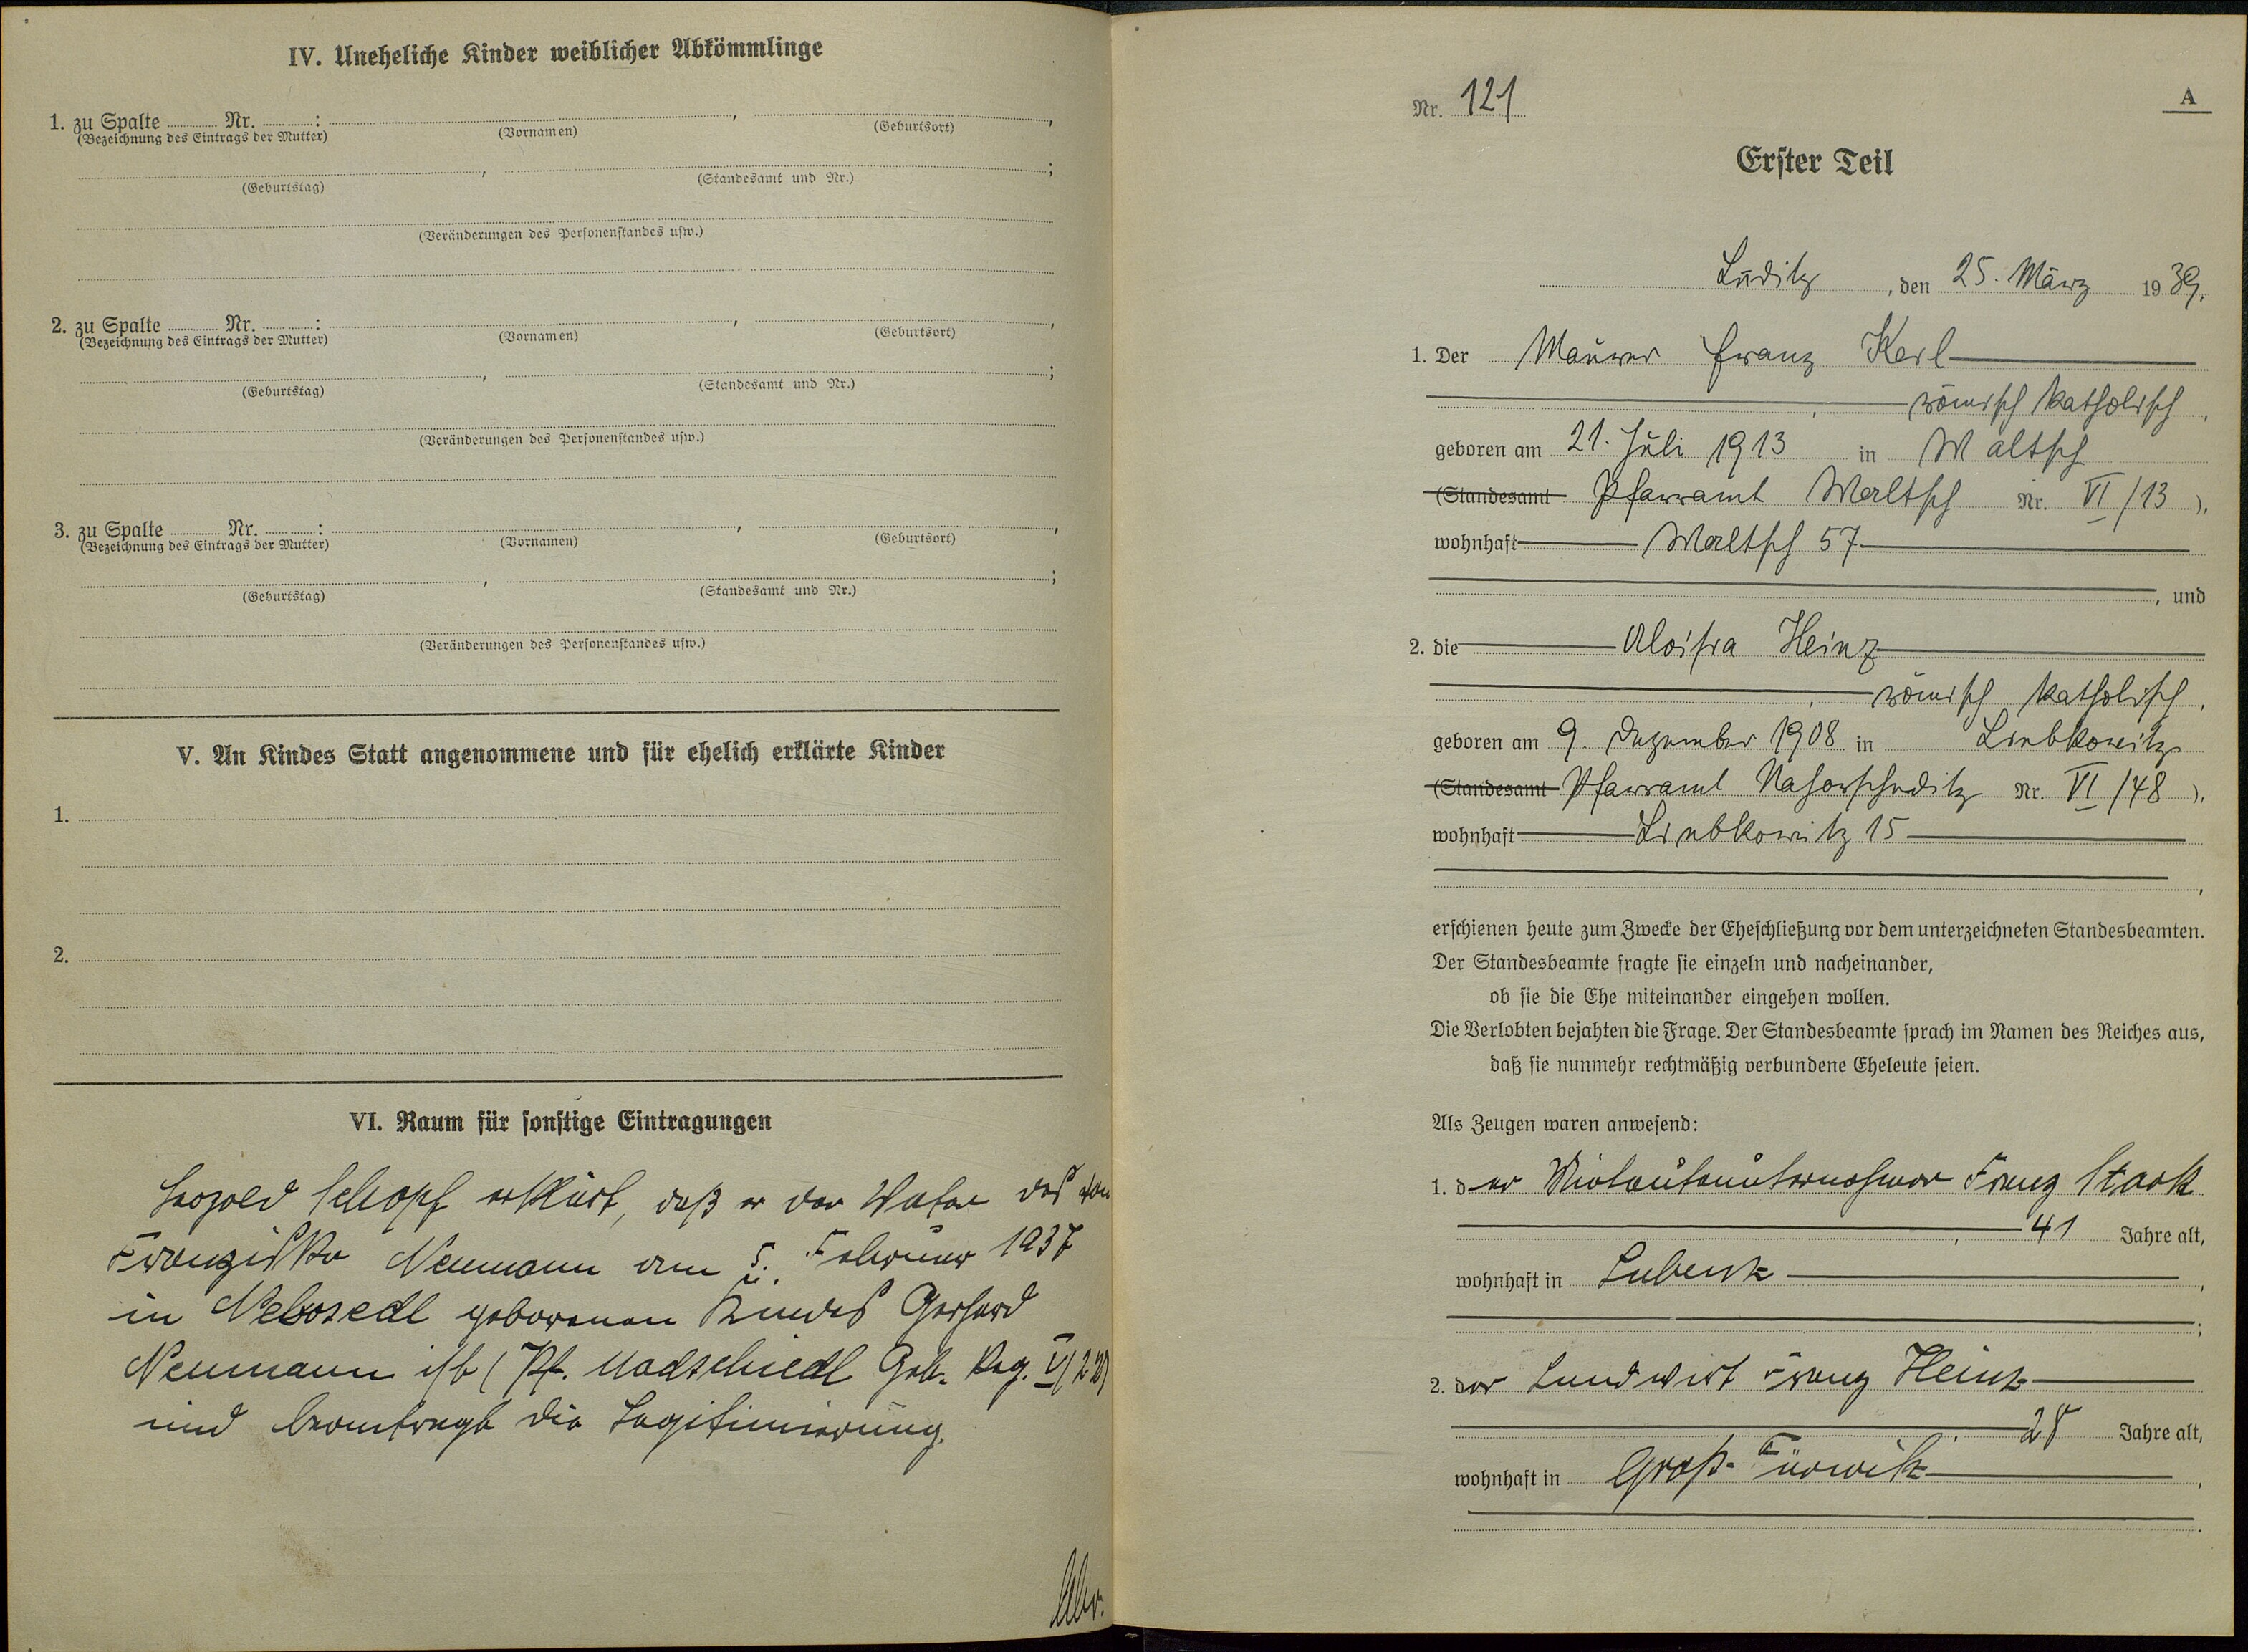 IV. Uneheliche Kinder weiblicher Abkömmlinge
1. zu Spalte Nr. : , ,
(Bezeichnung des Eintrags der Mutter) (Vornamen) (Geburtsort)
, ;
(Geburtstag) (Standesamt und Nr.)
(Veränderungen des Personenstandes usw.)
2. zu Spalte Nr. : , ,
(Bezeichnung des Eintrags der Mutter) (Vornamen) (Geburtsort)
, ;
(Geburtstag) (Standesamt und Nr.)
(Veränderungen des Personenstandes usw.)
3. zu Spalte Nr. : , ,
(Bezeichnung des Eintrags der Mutter) (Vornamen) (Geburtsort)
, ;
(Geburtstag) (Standesamt und Nr.)
(Veränderungen des Personenstandes usw.)
V. An Kindes Statt angenommene und für ehelich erklärte Kinder
1.
2.
VI. Raum für sonstige Eintragungen
Leopold Schopf erklärt, daß er der Vater des von
Franziska Neumann am 5. Februar 1937
in Nebosedl geborenen Kindes Gerhard
Neumann ist (Pf. Modschiedl Geb. Reg.
und beantragt die Legitimierung.
Nr. 121 A
Erster Teil
Luditz, den 25. März 1939.
1. Der Maurer Franz Karl
, römisch katholisch,
geboren am 21. Juli 1913 in Waltsch
(Standesamt Pfarramt Waltsch Nr. VI/13),
wohnhaft Waltsch 57
, und
2. die Aloisia Heinz
, römisch katholisch,
geboren am 9. Dezember 1908 in Liebkowitz
(Standesamt Pfarramt Nahorscheditz Nr. VI/48),
wohnhaft Liebkowitz 15
,
erschienen heute zum Zwecke der Eheschließung vor dem unterzeichneten Standesbeamten.
Der Standesbeamte fragte sie einzeln und nacheinander,
ob sie die Ehe miteinander eingehen wollen.
Die Verlobten bejahten die Frage. Der Standesbeamte sprach im Namen des Reiches aus,
daß sie nunmehr rechtmäßig verbundene Eheleute seien.
Als Zeugen waren anwesend:
1. der Mietautounternehmer Franz Stark
, 41 Jahre alt,
wohnhaft in Lubenz,
;
2. der Landwirt Franz Heinz
, 28 Jahre alt,
wohnhaft in Groß-Fürwitz,
.